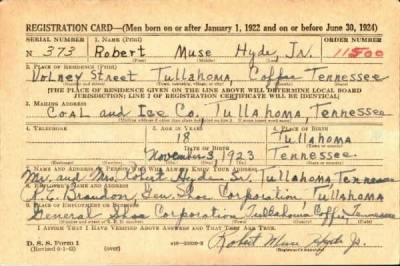 REGISTRATION CARD—(Men born on or after January 1, 1922 and on or before June 30, 1924)
SERIAL NUMBER 1. NAME (Print) ORDER NUMBER
N 373 Robert Muse Hyde, Jr. 11500
(First) (Middle) (Last)
2. PLACE OF RESIDENCE (Print)
Volney Street Tullahoma, Coffee Tennessee
[THE PLACE OF RESIDENCE GIVEN ON THE LINE ABOVE WILL DETERMINE LOCAL BOARD
JURISDICTION; LINE 2 OF REGISTRATION CERTIFICATE WILL BE IDENTICAL]
3. MAILING ADDRESS
Coal and Ice Co., Tullahoma, Tennessee
4. TELEPHONE 5. AGE IN YEARS 6. PLACE OF BIRTH
18 Tullahoma
DATE OF BIRTH
November 3, 1923 Tennessee.
Mr. and Mrs. Robert Hyde, Sr., Tullahoma, Tennessee
8. EMPLOYER'S NAME AND ADDRESS
Gen. Shoe Corporation, Tullahoma
General Shoe Corporation, Tullahoma, Coffee, Tennessee
I AFFIRM THAT I HAVE VERIFIED ABOVE ANSWERS AND THAT THEY ARE TRUE.
D. S. S. Form 1
Robert Muse Hyde Jr.